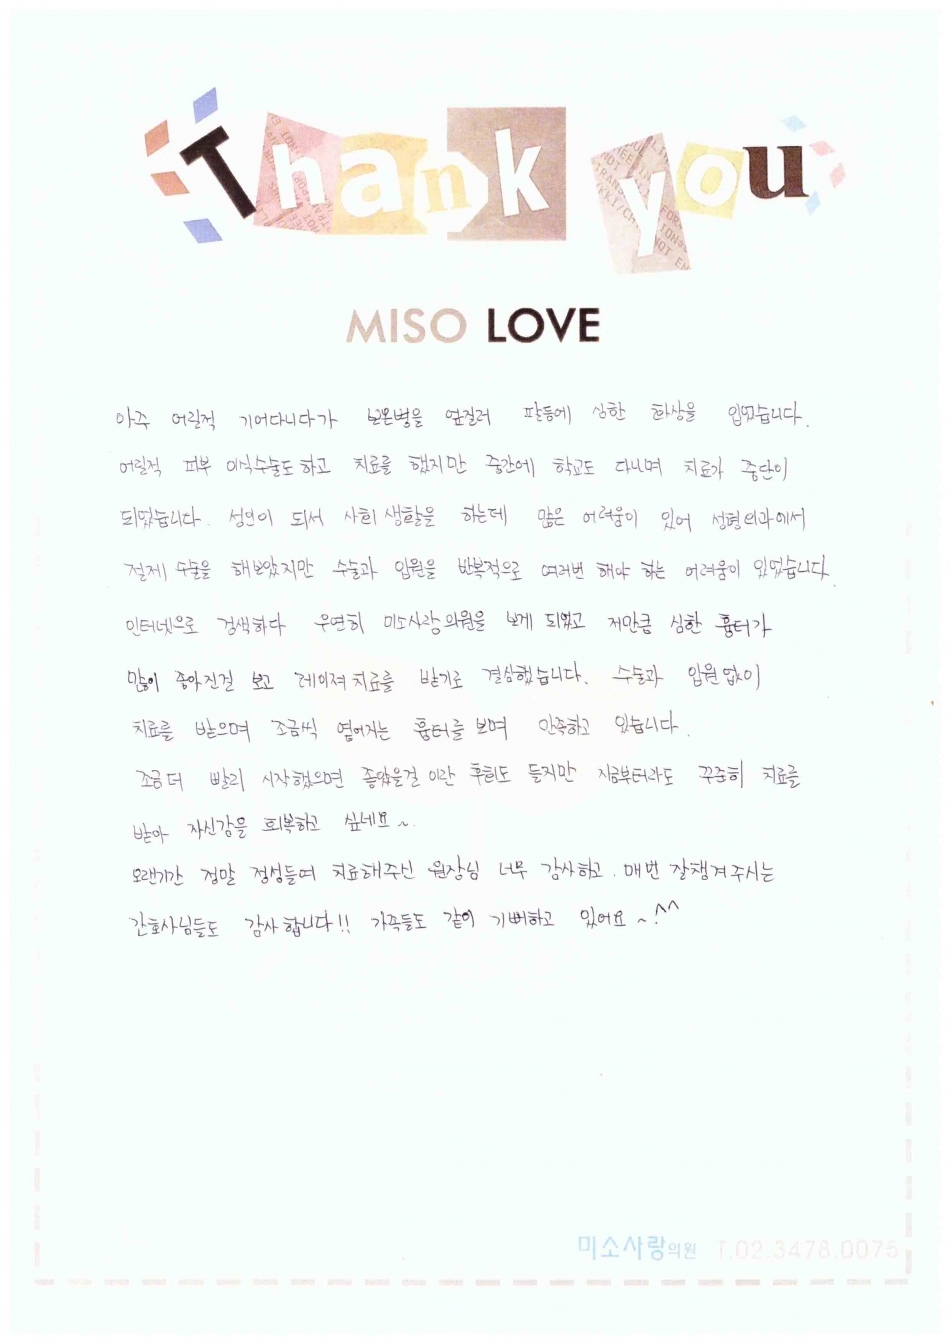 Thank you
MISO LOVE
아주 어릴적 기어다니다가 보온병을 엎질러 팔등에 심한 화상을 입었습니다.
어릴적 피부 이식수술도 하고 치료를 했지만 중간에 학교도 다니며 치료가 중단이
되었습니다. 성인이 되서 사회 생활을 하는데 많은 어려움이 있어 성형외과에서
절제 수술을 해보았지만 수술과 입원을 반복적으로 여러번 해야 하는 어려움이 있었습니다.
인터넷으로 검색하다 우연히 미소사랑의원을 보게 되었고 저만큼 심한 흉터가
많이 좋아진걸 보고 레이져 치료를 받기로 결심했습니다. 수술과 입원 없이
치료를 받으며 조금씩 옅어지는 흉터를 보며 만족하고 있습니다.
조금 더 빨리 시작했으면 좋았을걸 이란 후회도 들지만 지금부터라도 꾸준히 치료를
받아 자신감을 회복하고 싶네요~.
오랜기간 정말 정성들여 치료해주신 원장님 너무 감사하고. 매번 잘챙겨주시는
간호사님들도 감사합니다!! 가족들도 같이 기뻐하고 있어요~!^^
미소사랑의원 T.02.3478.0075